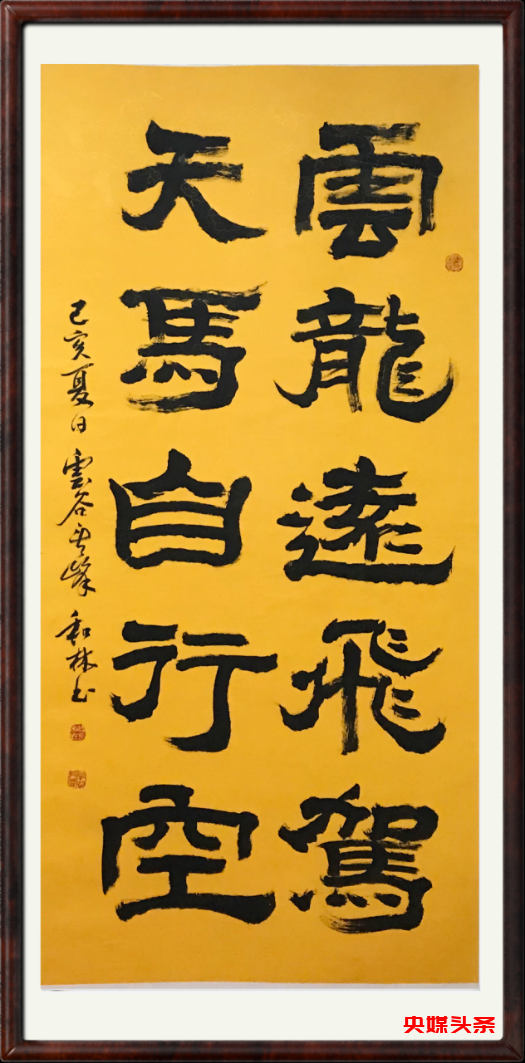 雲龍遠飛駕
天馬自行空
己亥夏日雲谷奇峰和林书
央媒头条